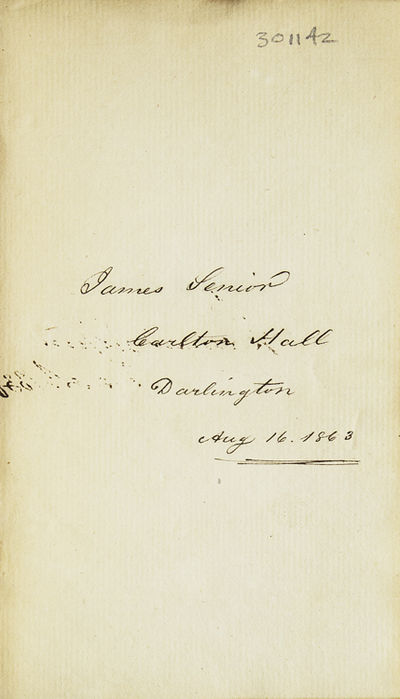 301142
James Senior
Carlton Hall
Darlington
Aug 16. 1863